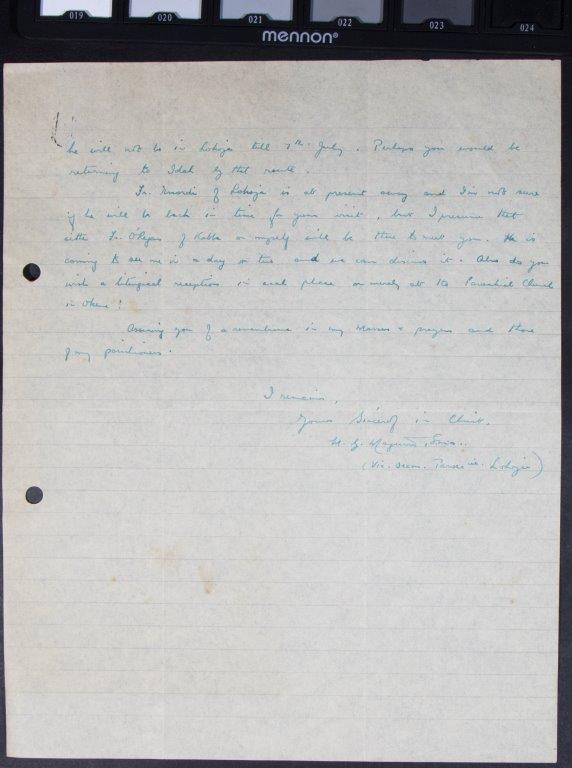 019 020 021 022 023 024
mennon®
he will not be in Lokoja till 7th July. Perhaps you would be
returning to Idah by that route.
Fr. of Lokoja is at present away and I'm not sure
if he will be back in time for your visit, but I presume that
either Fr. of Kabba or myself will be there to meet you. He is
coming to see me in a day or two and we can discuss it. Also do you
wish a liturgical reception in each place or merely at the Parochial Church
in Okene?
Assuring you of a remembrance in my Masses & prayers and those
of my parishioners.
I remain,
Yours Sincerely in Christ,
(Vic. Lokoja)